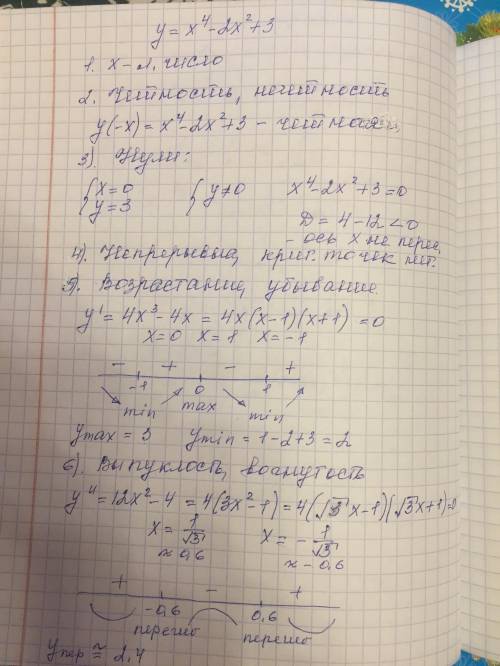 y = x⁴-2x²+3
1. x - л. число
2. Чётность, нечётность
y(-x) = x⁴-2x²+3 - чётная
3). Нули:
{ x=0 y=3 { y≠0 x⁴-2x²+3=0
D = 4-12<0
- ось x не перес.
4). Непрерывна, крит. точек нет.
5). Возрастание, убывание
y' = 4x³-4x = 4x(x-1)(x+1) = 0
x=0 x=1 x=-1
- + - +
-1 0 1
min max min
ymax = 3 ymin = 1-2+3=2
6). Выпуклость, вогнутость
y'' = 12x²-4 = 4(3x²-1) = 4(√3x-1)(√3x+1)=0
x = 1/√3 x = -1/√3
≈ 0,6 ≈ -0,6
+ - +
-0,6 0,6
перегиб перегиб
yпер ≅ 2,4